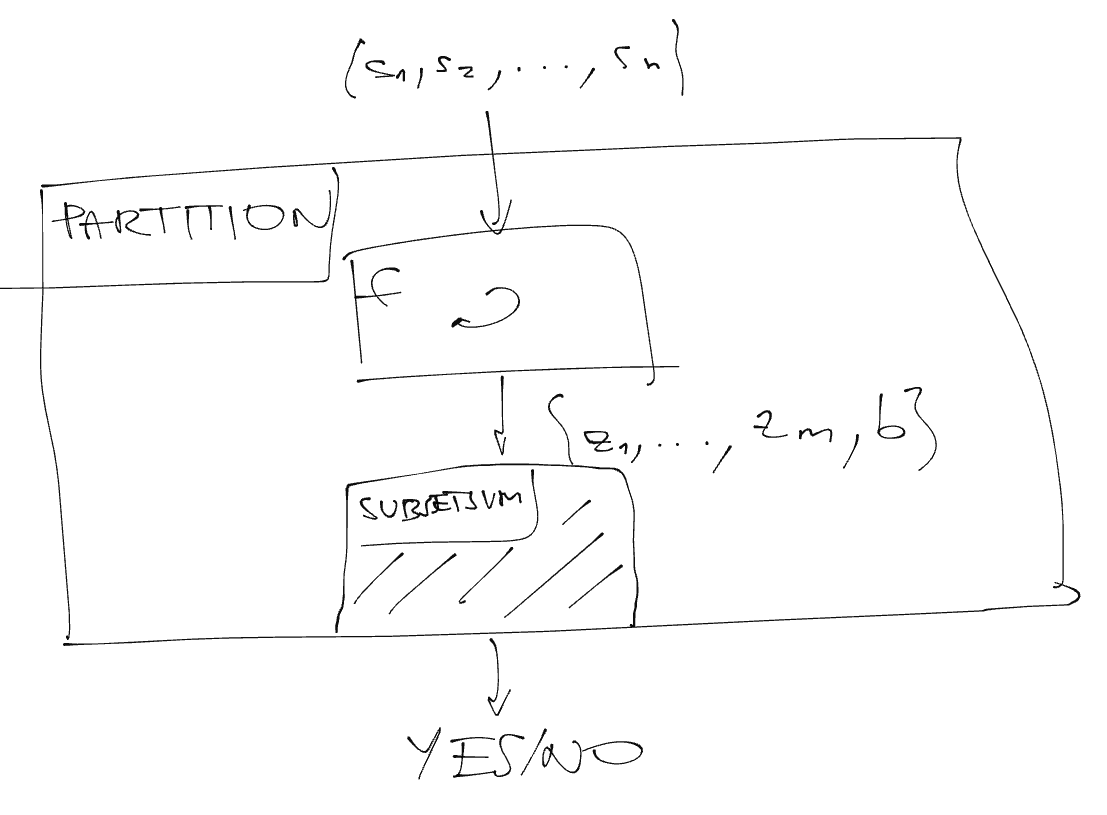 (s1, s2, ..., sn)
PARTITION
f
{z1, ..., zm, b}
SUBSETSUM
YES/NO